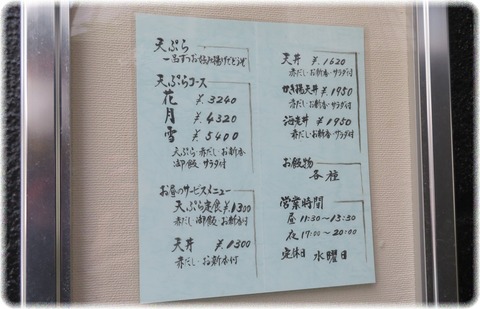 天ぷら
一品ずつお好み揚げでどうぞ
天ぷらコース
花 ¥.3240
月 ¥.4320
雪 ¥.5400
天ぷら・赤だし・お新香
御飯 サラダ付
お昼のサービスメニュー
天ぷら定食 ¥1300
赤だし・御飯・お新香付
天丼 ¥1300
赤だし・お新香付
天丼 ¥.1620
赤だし・お新香・サラダ付
かき揚天丼 ¥1950
赤だし・お新香・サラダ付
海老丼 ¥1950
赤だし・お新香・サラダ付
お飲物
各種
営業時間
昼 11:30〜13:30
夜 17:00〜20:00
定休日 水曜日